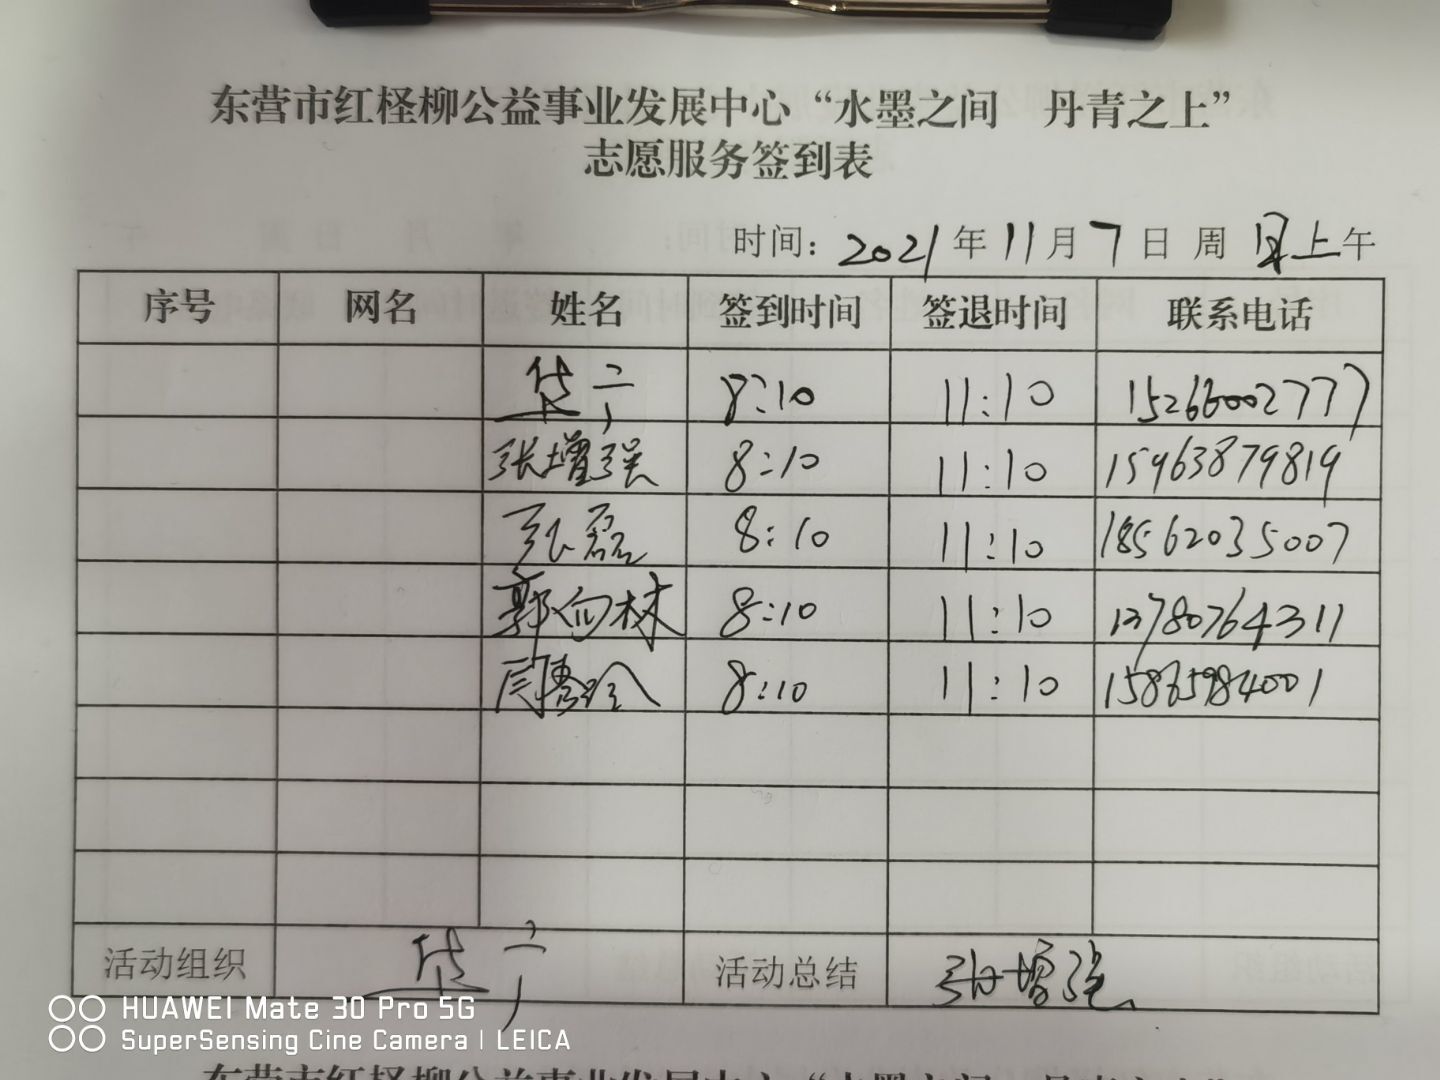 东营市红柽柳公益事业发展中心“水墨之间 丹青之上”
志愿服务签到表
时间：2021年11月7日 周日上午
序号 网名 姓名 签到时间 签退时间 联系电话
8:10 11:10 15266002777
张增强 8:10 11:10 15963879819
张磊 8:10 11:10 18562035007
郭向林 8:10 11:10 13780764311
8:10 11:10 15865984001
活动组织 活动总结 张增强
HUAWEI Mate 30 Pro 5G
SuperSensing Cine Camera | LEICA
东营市红柽柳公益事业发展中心“水墨之间 丹青之上”